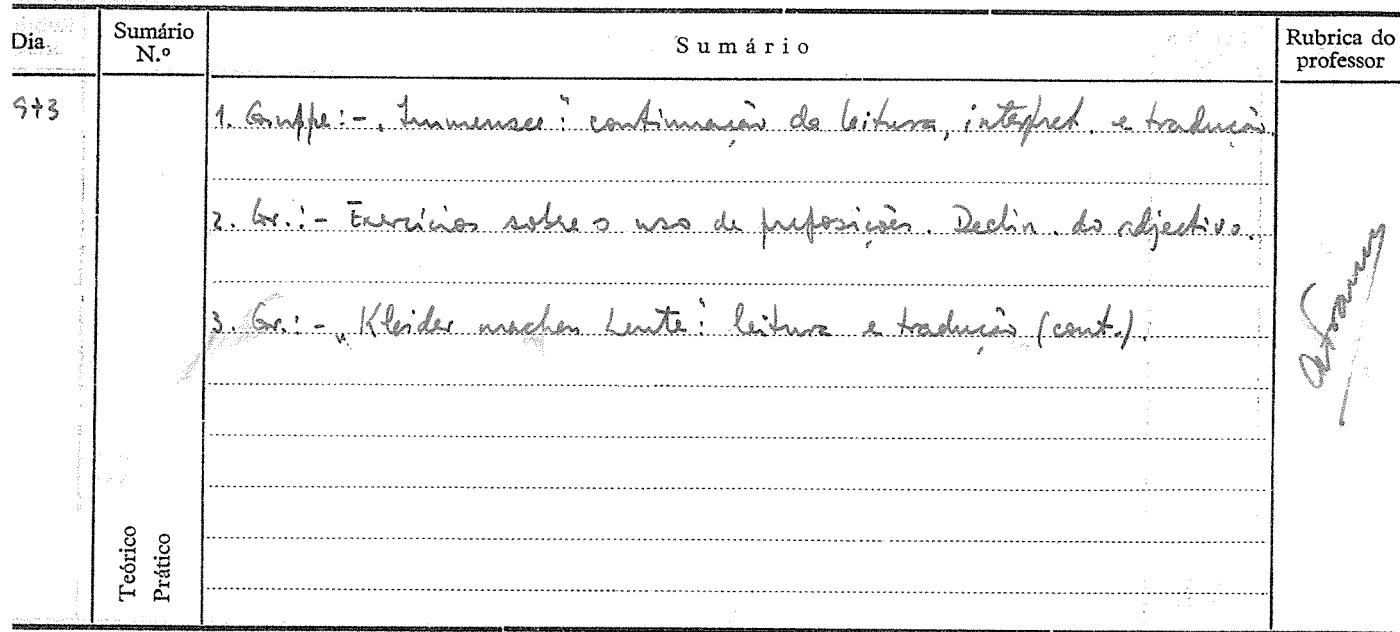 Dia
Sumário N.º
Sumário
Rubrica do professor
1. Gruppe:- „Immensee": continuação da leitura, interpret. e tradução
2. Gr.:- Exercícios sobre o uso de preposições. Declin. do adjectivo.
3. Gr.:- „Kleider machen Leute": leitura e tradução (cont.).
Teórico
Prático